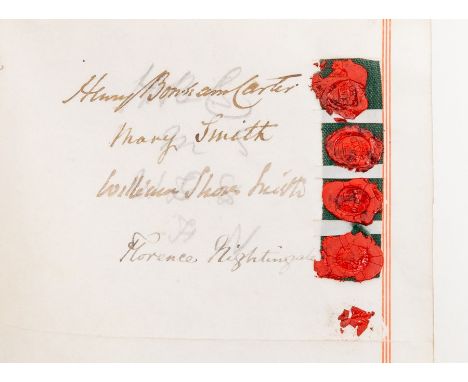 Henry Bonham Carter
Mary Smith
William Shore Smith
Florence Nightingale